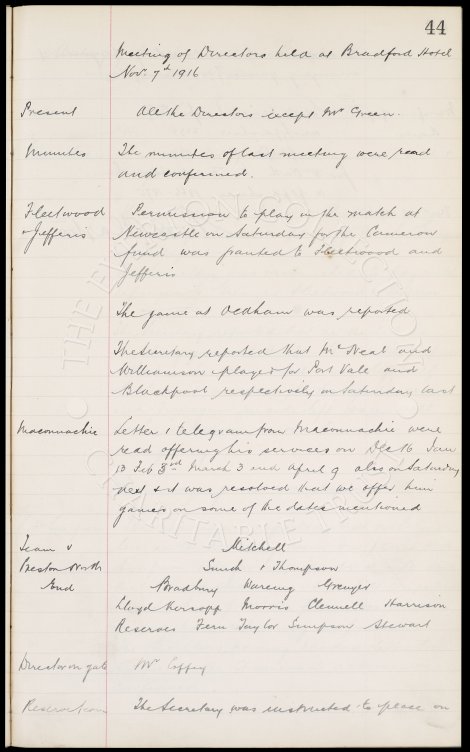 44
Meeting of Directors held at Bradford Hotel
Nov. 7th 1916
Present All the Directors except Mr Green.
Minutes The minutes of last meeting were read
and confirmed.
Fleetwood Permission to play in the match at
& Jefferis Newcastle on Saturday for the Cameron
fund was granted to Fleetwood and
Jefferis
The game at Oldham was reported
The Secretary reported that McNeal and
Williamson played for Port Vale and
Blackpool respectively on Saturday last
Maconnachie Letter & telegram from Maconnachie were
read offering his services on Dec 16 Jan
13 Feb 3rd March 3 and April 9 also on Saturday
next & it was resolved that we offer him
games on some of the dates mentioned
Team v Mitchell
Preston North Smith & Thompson
End Bradbury Wareing Grenyer
Lloyd Kirsopp Morris Clennell Harrison
Reserves Fern Taylor Simpson Stewart
Director on gate Mr Coffey
The Secretary was instructed to place on
THE EVERTON COLLECTION CHARITABLE TRUST